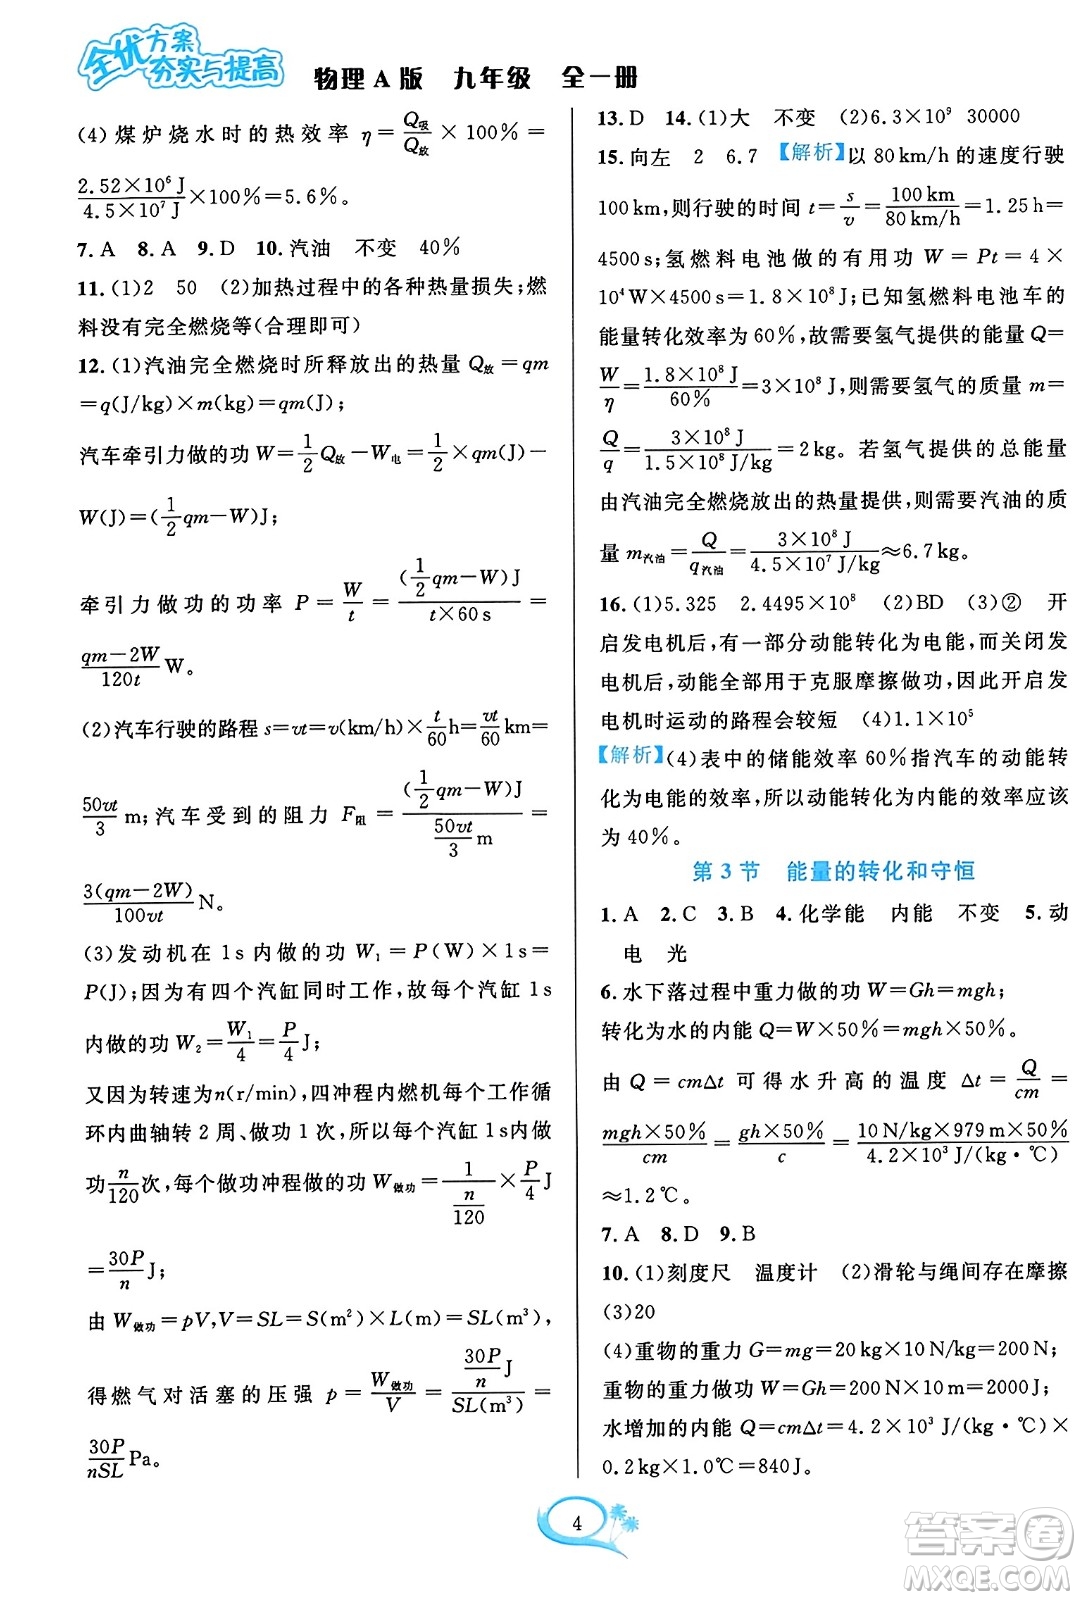 全优方案
夯实与提高
物理A版 九年级 全一册
(4)煤炉烧水时的热效率 η=Q吸/Q放×100%=
2.52×10⁶ J/4.5×10⁷ J×100%=5.6%。
7. A 8. A 9. D 10. 汽油 不变 40%
11. (1)2 50 (2)加热过程中的各种热量损失;燃
料没有完全燃烧等(合理即可)
12. (1)汽油完全燃烧时所释放出的热量 Q放=qm
=q(J/kg)×m(kg)=qm(J);
汽车牵引力做的功 W=1/2Q放-W电=1/2×qm(J)-
W(J)=(1/2qm-W)J;
牵引力做功的功率 P=W/t=(1/2qm-W)J/t×60 s=
qm-2W/120t W。
(2)汽车行驶的路程 s=vt=v(km/h)×t/60h=vt/60km=
50vt/3 m;汽车受到的阻力 F阻=(1/2qm-W)J/(50vt/3 m)=
3(qm-2W)/100vt N。
(3)发动机在 1 s 内做的功 W₁=P(W)×1 s=
P(J);因为有四个汽缸同时工作,故每个汽缸 1 s
内做的功 W₂=W₁/4=P/4 J;
又因为转速为n(r/min),四冲程内燃机每个工作循
环内曲轴转 2 周、做功 1 次,所以每个汽缸 1 s内做
功n/120次,每个做功冲程做的功 W做功=1/(n/120)×P/4 J
=30P/n J;
由 W做功=pV,V=SL=S(m²)×L(m)=SL(m³),
得燃气对活塞的压强 p=W做功/V=(30P/n J)/SL(m³)=
30P/nSL Pa。
13. D 14. (1)大 不变 (2)6.3×10⁹ 30000
15. 向左 2 6.7 【解析】以 80 km/h的速度行驶
100 km,则行驶的时间 t=s/v=100 km/80 km/h=1.25 h=
4500 s;氢燃料电池做的有用功 W=Pt=4×
10⁴ W×4500 s=1.8×10⁸ J;已知氢燃料电池车的
能量转化效率为 60%,故需要氢气提供的能量 Q=
W/η=1.8×10⁸ J/60%=3×10⁸ J,则需要氢气的质量 m=
Q/q=3×10⁸ J/1.5×10⁸ J/kg=2 kg。若氢气提供的总能量
由汽油完全燃烧放出的热量提供,则需要汽油的质
量 m汽油=Q/q汽油=3×10⁸ J/4.5×10⁷ J/kg≈6.7 kg。
16. (1)5.325 2.4495×10⁸ (2)BD (3)② 开
启发电机后,有一部分动能转化为电能,而关闭发
电机后,动能全部用于克服摩擦做功,因此开启发
电机时运动的路程会较短 (4)1.1×10⁵
【解析】(4)表中的储能效率 60%指汽车的动能转
化为电能的效率,所以动能转化为内能的效率应该
为 40%。
第 3 节 能量的转化和守恒
1. A 2. C 3. B 4. 化学能 内能 不变 5. 动
电 光
6. 水下落过程中重力做的功 W=Gh=mgh;
转化为水的内能 Q=W×50%=mgh×50%。
由 Q=cmΔt 可得水升高的温度 Δt=Q/cm=
mgh×50%/cm=gh×50%/c=10 N/kg×979 m×50%/4.2×10³ J/(kg·℃)
≈1.2℃。
7. A 8. D 9. B
10. (1)刻度尺 温度计 (2)滑轮与绳间存在摩擦
(3)20
(4)重物的重力 G=mg=20 kg×10 N/kg=200 N;
重物的重力做功 W=Gh=200 N×10 m=2000 J;
水增加的内能 Q=cmΔt=4.2×10³ J/(kg·℃)×
0.2 kg×1.0℃=840 J。
4
答案圈
MXQE.COM